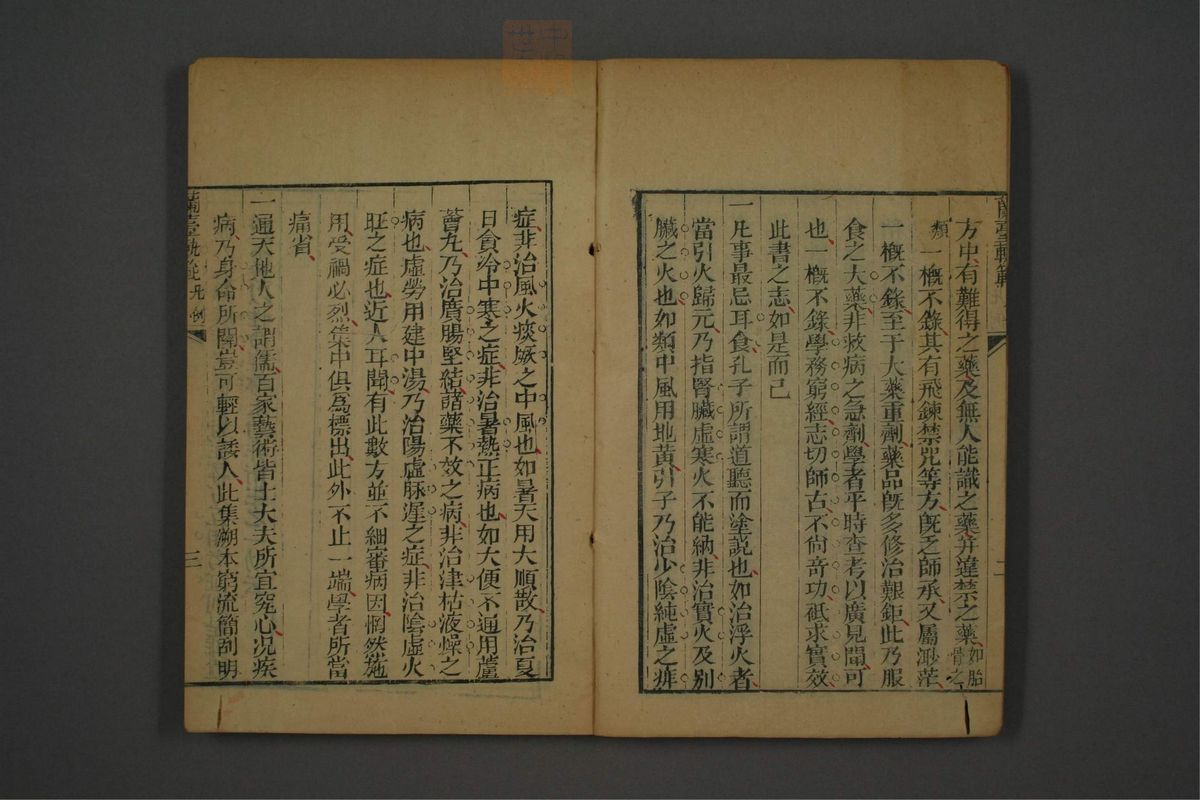 蘭臺軌範
方中有難得之藥及無人能識之藥并違禁之藥如胎骨之
類一概不錄其有飛鍊禁咒等方旣乏師承又屬渺茫
一概不錄至于大藥重劑藥品旣多修治艱鉅此乃服
食之大藥非救病之急劑學者平時查考以廣見聞可
也一概不錄學務窮經志切師古不尙奇功祗求實效
此書之志如是而已
一凡事最忌耳食孔子所謂道聽而塗說也如治浮火者
當引火歸元乃指腎臟虛寒火不能納非治實火及别
臟之火也如類中風用地黃引子乃治少陰純虛之痱
症非治風火痰厥之中風也如暑天用大順散乃治夏
日食冷中寒之症非治暑熱正病也如大便不通用蘆
薈丸乃治廣腸堅結諸藥不效之病非治津枯液燥之
病也虛勞用建中湯乃治陽虛脉遲之症非治陰虛火
旺之症也近人耳聞有此數方並不細審病因惘然施
用受禍必烈集中俱為標出此外不止一端學者所當
痛省
一通天地人之謂儒百家藝術皆士大夫所宜究心况疾
病乃身命所關豈可輕以諉人此集溯本窮流簡剖明
蘭臺軌範 凡例
三